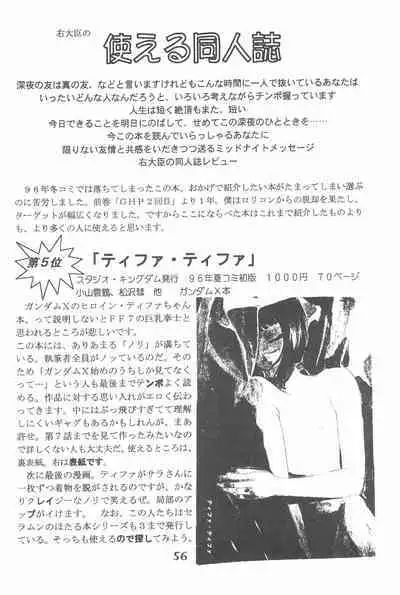 右大臣の
使える同人誌
深夜の友は真の友、などと言いますけれどもこんな時間に一人で抜いているあなたは
いったいどんな人なんだろうと、いろいろ考えながらチンポ握っています
人生は短く絶頂もまた、短い
今日できることを明日にのばして、せめてこの深夜のひとときを……
今この本を読んでいらっしゃるあなたに
限りない友情と共感をいだきつつ送るミッドナイトメッセージ
右大臣の同人誌レビュー
96年冬コミでは落ちてしまったこの本、おかげで紹介したい本がたまってしまい選ぶ
のに苦労しました。前巻「GHP2回目」より1年、僕はロリコンからの脱却を果たし、
ターゲットが幅広くなりました、ですからここにならべた本はこれまで紹介したものより
も、より多くの人に使えると思います。
第5位
「ティファ・ティファ」
スタジオ・キングダム発行 96年夏コミ初版 1000円 70ページ
小山雲鶴、松沢彗 他 ガンダムX本
ガンダムXのヒロイン・ティファちゃん
本、って説明しないとFF7の巨乳拳士と
思われるところが悲しいです。
この本には、ありあまる「ノリ」が満ちて
いる。執筆者全員がノッているのだ。その
ため「ガンダムX始めのうちしか見てなく
って…」という人も最後までテンポよく読
める。作品に対する思い入れがエロく伝わ
ってきます。中にはぶっ飛びすぎてて理解
しにくいギャグもあるかもしれんが、まあ
許せ。第7話までを見て作ったみたいなの
で詳しくない人も大丈夫だ。使えるところは、
裏表紙。右は表紙です。
次に最後の漫画。ティファがサラさんに
一枚ずつ着物を脱がされるのですが、かな
りクレイジーなノリで笑えるぜ。局部のア
ップがイけます。 なお、この人たちはセ
ラムンのほたる本シリーズも3まで発行し
ている。そっちも使えるので探してみよう。
ティファ・ティファ
56